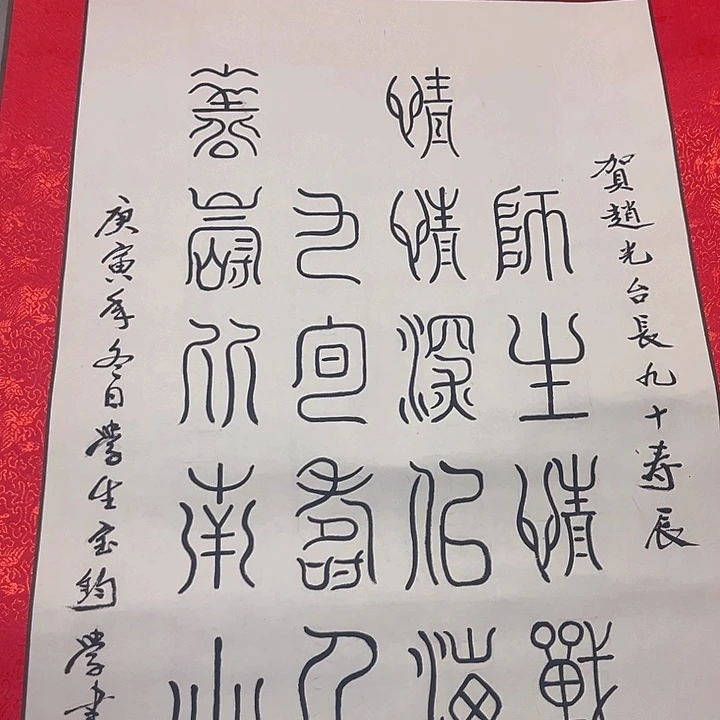 賀趙光台長九十寿辰
師生情戰
情情深似海
九旬壽人
壽比南山
庚寅年冬日學生宝鈞學書